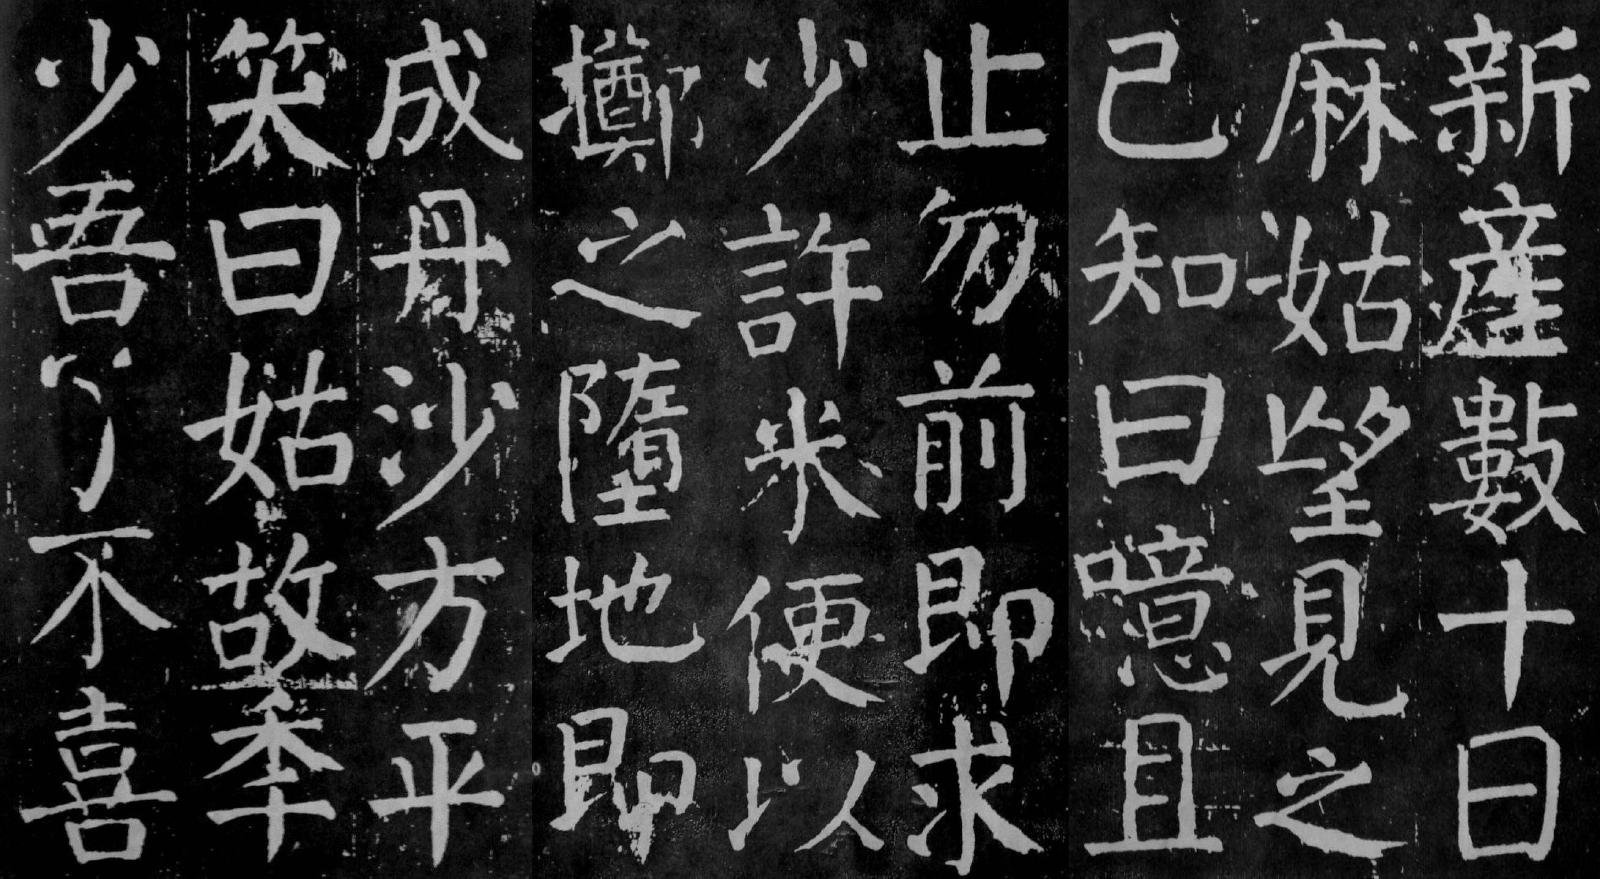 新産數十日
麻姑望見之
已知曰噫且
止勿前即求
少許米便以
擲之墮地即
成丹沙方平
笑曰姑故秊
少吾不喜